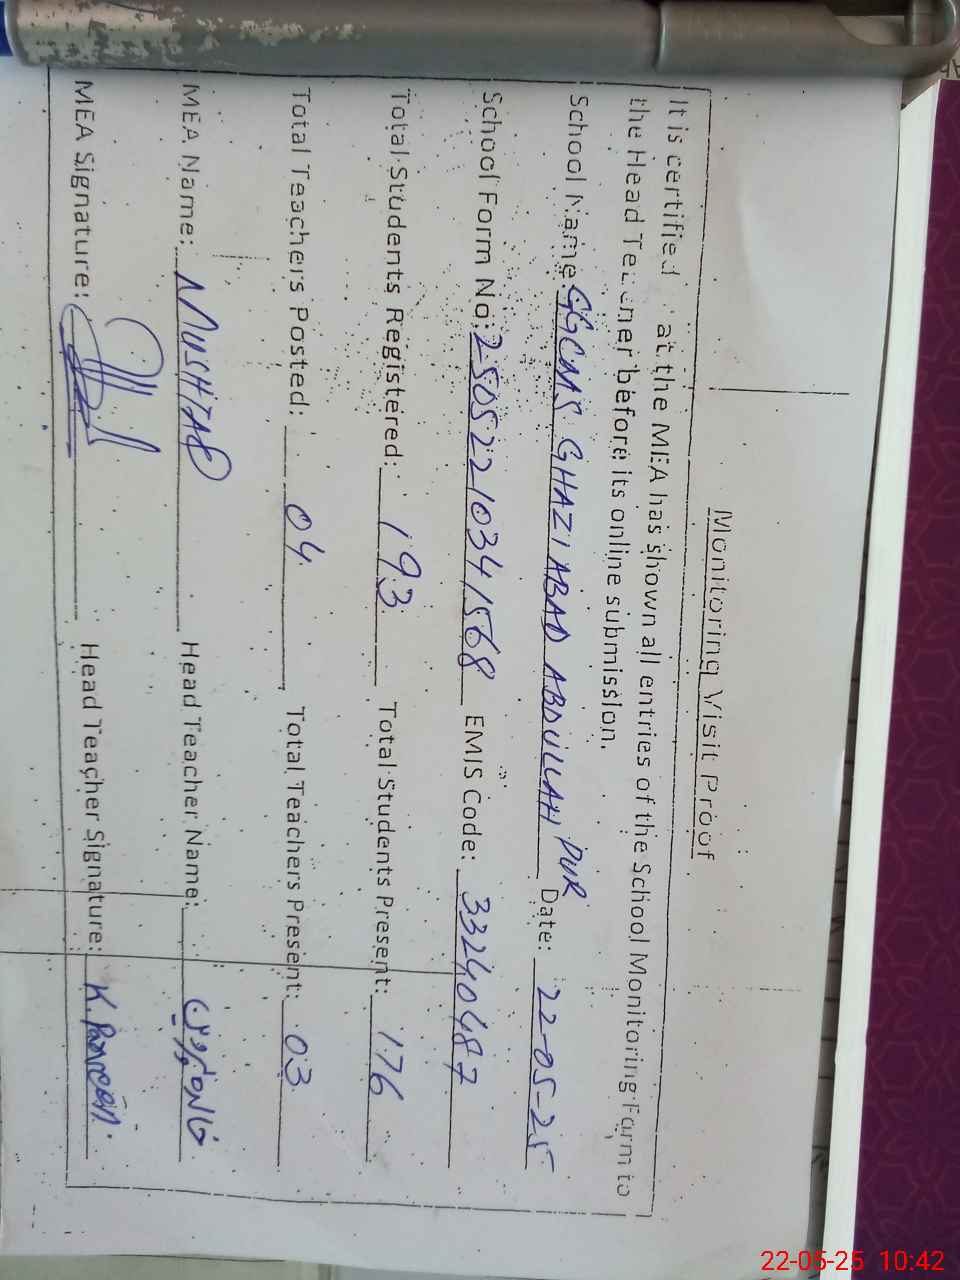 Monitoring Visit Proof
It is certified at the MEA has shown all entries of the School Monitoring Form to
the Head Teacher before its online submission.
School Name: GGCMS GHAZIABAD ABDULLAH PUR Date: 22-05-25
School Form No: 25052210341568 EMIS Code: 33240487
Total Students Registered: 193 Total Students Present: 176
Total Teachers Posted: 04 Total Teachers Present: 03
MEA Name: MUSHTAQ Head Teacher Name: خالدہ پروین
MEA Signature: Head Teacher Signature: K. Parveen
22-05-25 10:42